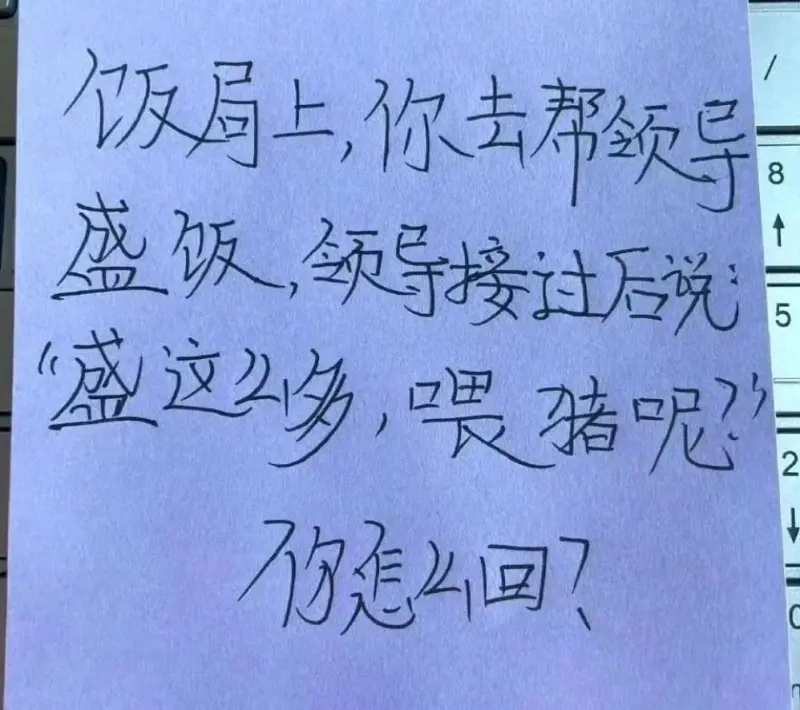 饭局上,你去帮领导
盛饭,领导接过后说:
"盛这么多,喂猪呢?"
你怎么回?
/
8
↑
5
2
↓